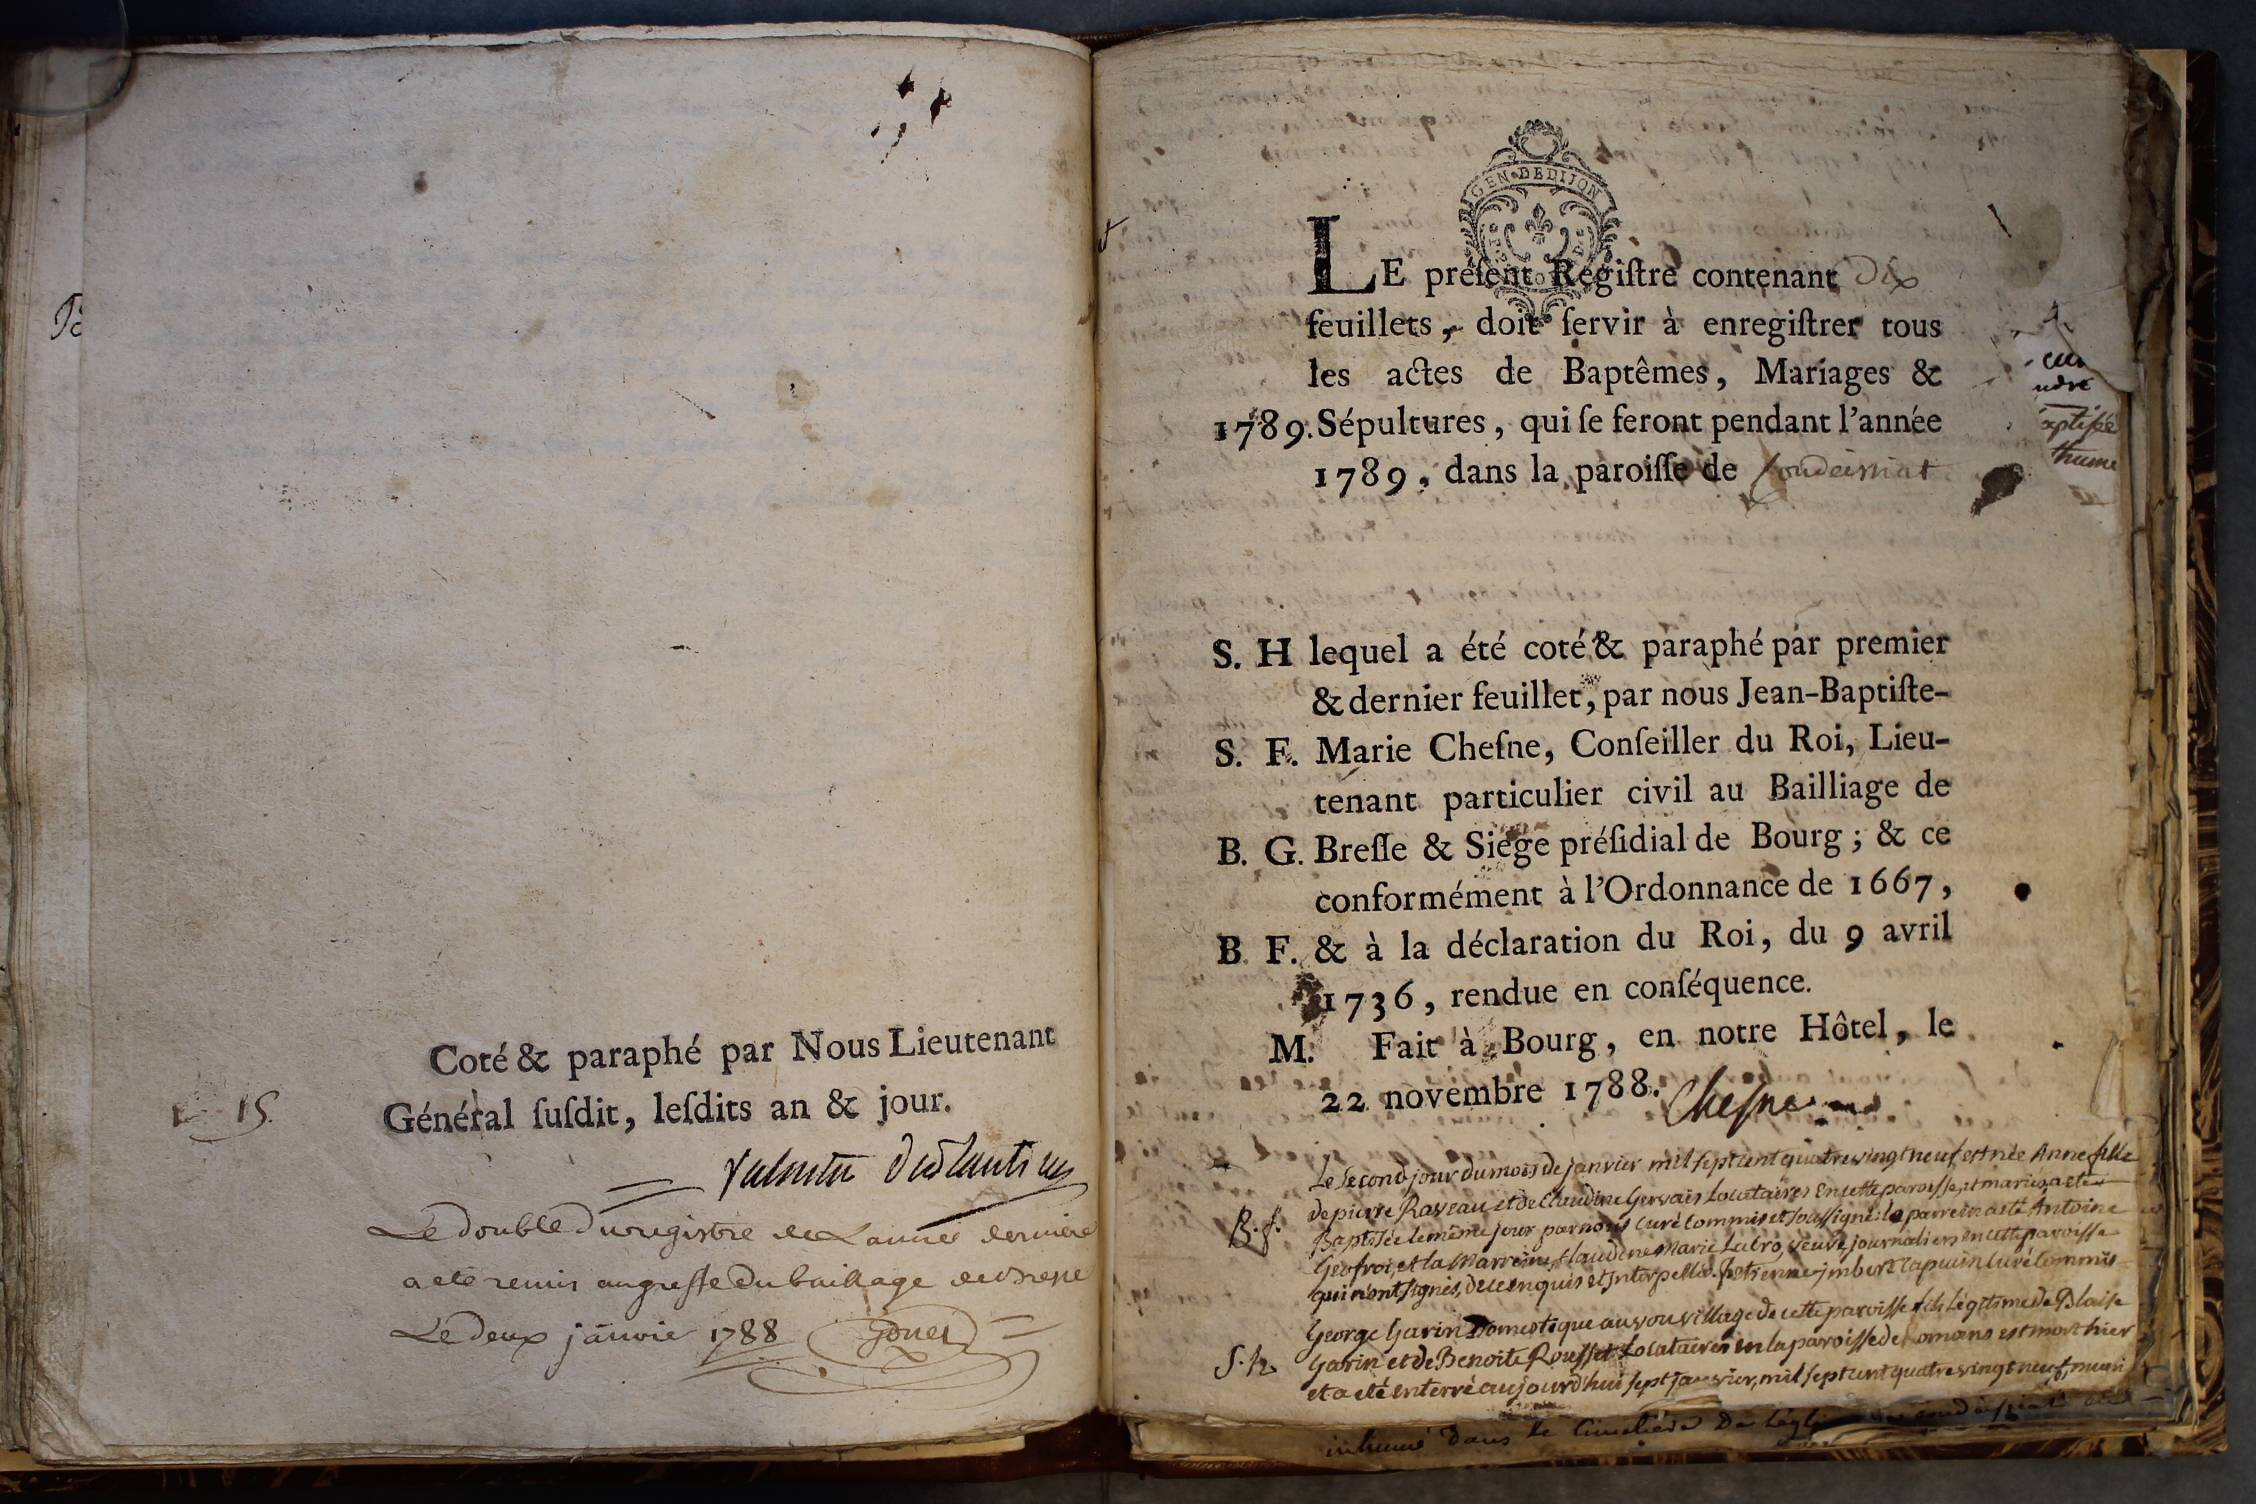 Coté & paraphé par Nous Lieutenant
15.
Général ſuſdit, leſdits an & jour.
Le double du registre de L'année derniere
a eté remis au greffe du bailliage de Bresse
Le deux janvie 1788
GEN·DE DIJON
LE préſent Regiſtre contenant Dix
feuillets, doit ſervir à enregiſtrer tous
les actes de Baptêmes, Mariages &
1789. Sépultures, qui ſe feront pendant l'année
1789, dans la paroiſſe de Condeissiat
S. H lequel a été coté & paraphé par premier
& dernier feuillet, par nous Jean-Baptiſte-
S. F. Marie Cheſne, Conſeiller du Roi, Lieu-
tenant particulier civil au Bailliage de
B. G. Breſſe & Siège préſidial de Bourg; & ce
conformément à l'Ordonnance de 1667,
B. F. & à la déclaration du Roi, du 9 avril
1736, rendue en conſéquence.
M. Fait à Bourg, en notre Hôtel, le
22 novembre 1788. Cheſne
Le second jour du mois de janvier mil sept cent quatre vingt neuf est née Anne fille
de pierre Raveau et de Claudine Gervais Locataires en cette paroisse, et mariés, a eté
B. f. Baptisée le même jour par nous curé commis et soussigné: le parrein a eté Antoine
Geofroi, et la Marreine, Claudine Marie veuve, journaliers en cette paroisse
qui n'ont signés, de ce enquis et interpellés. Etienne jmbert capucin curé commis
George Garin Domestique au village de cette paroisse fils légitime de Blaise
S. h. Garin et de Benoite Rousset Locataires en la paroisse de Romans est mort hier
et a eté enterré aujourd'hui sept janvier, mil sept cent quatre vingt neuf, muni
inhumé dans le Cimetière De l'église